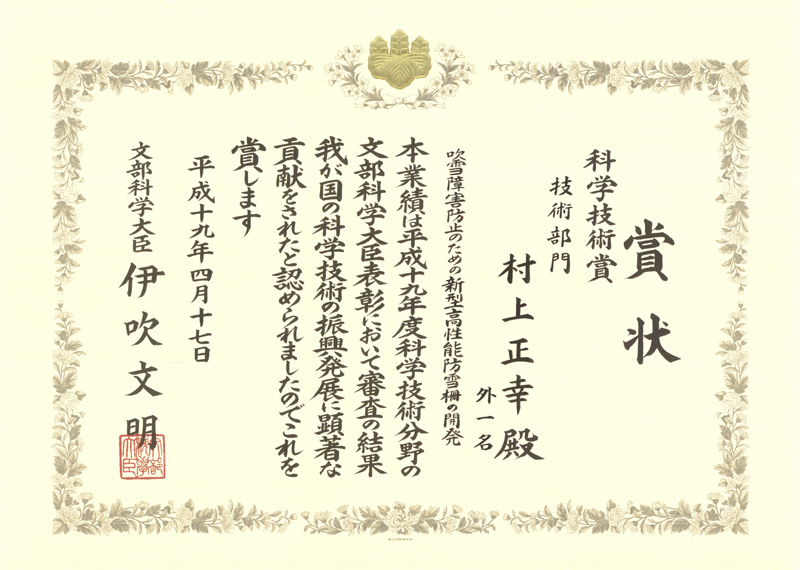 賞状
科学技術賞
技術部門
村上正幸殿
外一名
吹雪障害防止のための新型高性能防雪柵の開発
本業績は平成十九年度科学技術分野の
文部科学大臣表彰において審査の結果
我が国の科学技術の振興発展に顕著な
貢献をされたと認められましたのでこれを
賞します
平成十九年四月十七日
文部科学大臣 伊吹文明
文部科学大臣